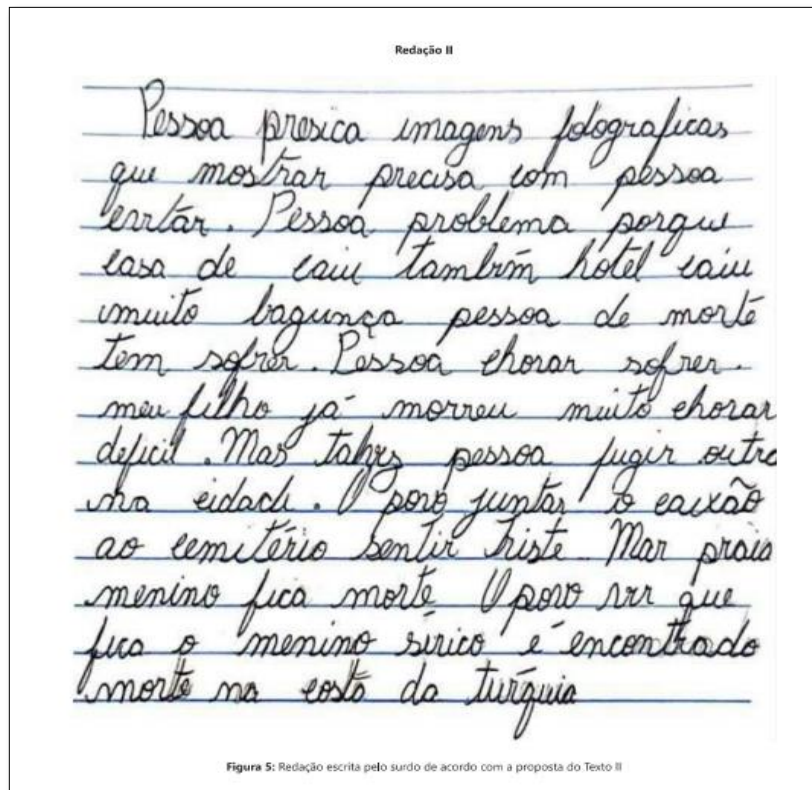 Redação II
Pessoa presica imagens fotograficas
que mostrar precisa com pessoa
evitár. Pessoa problema porque
casa de caiu também hotel caiu
muito bagunça pessoa de morte
tem sofrer. Pessoa chorar sofrer.
meu filho já morreu muito chorar
deficil. Mas talvez pessoa fugir outro
na cidade. O povo juntar o caixão
ao cemitério sentir triste. Mar praia
menino fica morte O povo ver que
fica o menino sírico é encontrado
morte na costa da turquia
Figura 5: Redação escrita pelo surdo de acordo com a proposta do Texto II